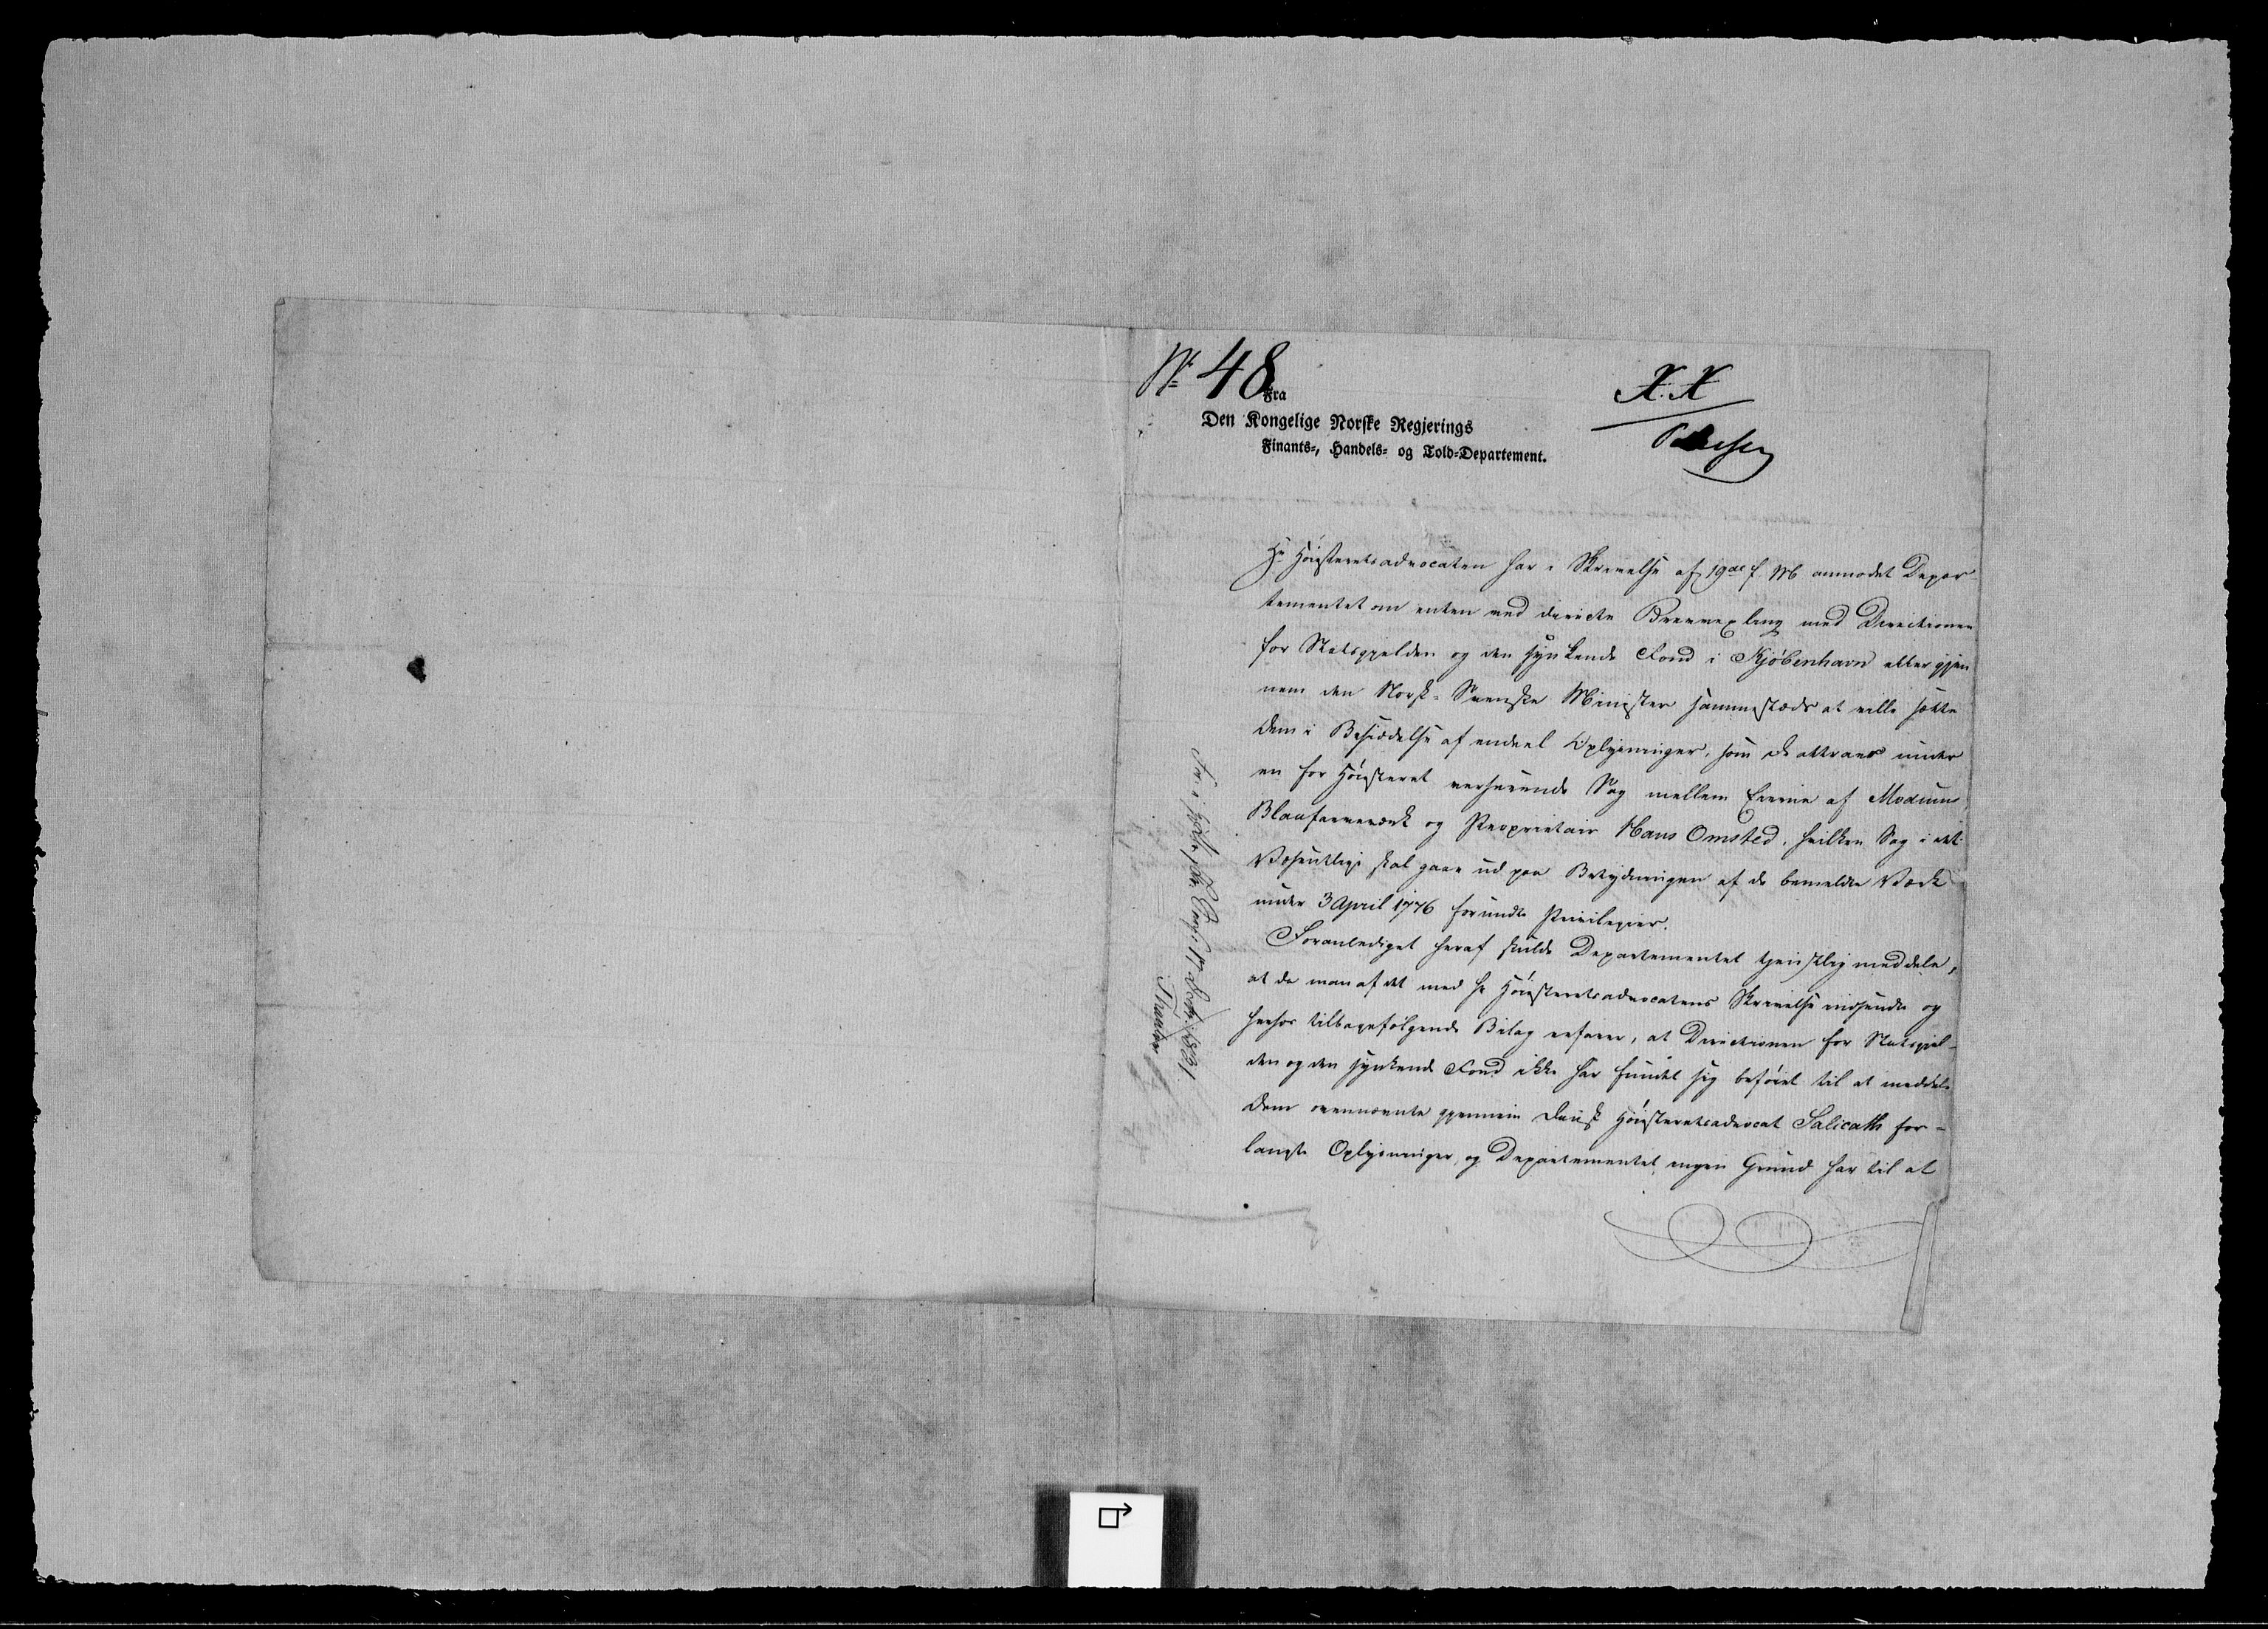 No 48
X. X
Fra
Den Kongelige Norske Regjerings
Finants-, Handels- og Told-Departement.
Hr Høiesteretsadvocaten har i Skrivelse af 19de f. M. anmodet Depar-
tementet om enten ved directe Brevvexling med Directionen
for Statsgjelden og den synkende Fond i Kjøbenhavn eller gjen-
nem den Norsk-Svenske Minister sammesteds at ville sætte
Dem i Besiddelse af endeel Oplysninger, som De attraaer under
en for Høiesteret verserende Sag mellem Eierne af Modums
Blaafarveværk og Proprietair Hans Omsted, hvilken Sag i det
Væsentlige skal gaae ud paa Betydningen af de bemeldte Værk
under 3 April 1776 forundte Privilegier.
Foranlediget heraf skulde Departementet tjenstlig meddele,
at da man af det med Hr Høiesteretsadvocatens Skrivelse indsendte og
herhos tilbagefølgende Bilag erfarer, at Directionen for Statsgjel-
den og den synkende Fond ikke har fundet sig beføiet til at meddele
Dem ovennævnte gjennem Dansk Høiesteretsadvocat Salicath for-
langte Oplysninger, og Departementet ingen Grund har til at